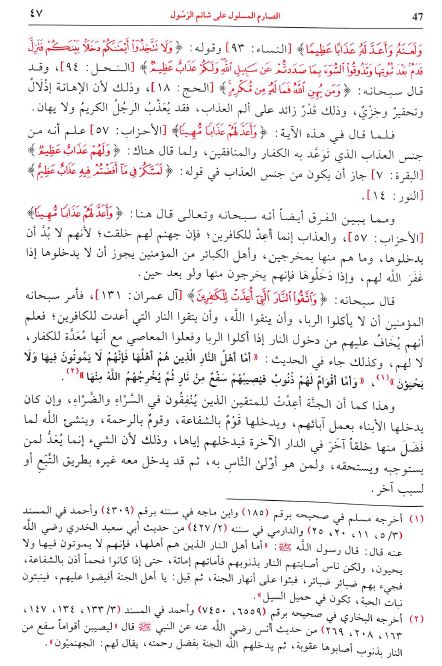 47 الصارم المسلول على شاتم الرسول ٤٧
وَلَعَنَهُ وَأَعَدَّ لَهُ عَذَابًا عَظِيمًا﴾ [النساء: ٩٣] وقوله: ﴿وَلَا نَتَّخِذُوٓا أَيْمَٰنَكُمْ دَخَلًۢا بَيْنَكُمْ فَنَزِلَّ
قَدَمٌۢ بَعْدَ ثُبُوتِهَا وَتَذُوقُوا۟ ٱلسُّوٓءَ بِمَا صَدَدتُّمْ عَن سَبِيلِ ٱللَّهِ وَلَكُمْ عَذَابٌ عَظِيمٌ﴾ [النحل: ٩٤]، وقد
قال سبحانه: ﴿وَمَن يُهِنِ ٱللَّهُ فَمَا لَهُۥ مِن مُّكْرِمٍ﴾ [الحج: ١٨]، وذلك لأن الإهانة إذْلالٌ
وتحقير وخِزْيٌ، وذلك قَدْرٌ زائد على ألم العذاب، فقد يُعَذَّبُ الرجلُ الكريمُ ولا يهان.
فلما قال في هذه الآية: ﴿وَأَعَدَّ لَهُمْ عَذَابًا مُّهِينًا﴾ [الأحزاب: ٥٧] علم أنه من
جنس العذاب الذي تَوَعَّد به الكفار والمنافقين، ولما قال هناك: ﴿وَلَهُمْ عَذَابٌ عَظِيمٌ﴾
[البقرة: ٧] جاز أن يكون من جنس العذاب في قوله: ﴿لَمَسَّكُمْ فِى مَآ أَفَضْتُمْ فِيهِ عَذَابٌ عَظِيمٌ﴾
[النور: ١٤].
ومما يبين الفرق أيضاً أنَّه سبحانه وتعالى قال هنا: ﴿وَأَعَدَّ لَهُمْ عَذَابًا مُّهِينًا﴾
[الأحزاب: ٥٧]، والعذاب إنما أُعِدَّ للكافرين؛ فإن جهنم لهم خلقت؛ لأنهم لا بُدَّ أن
يدخلوها، وما هم منها بمخرجين، وأهل الكبائر من المؤمنين يجوز أن لا يدخلوها إذا
غَفَرَ اللَّه لهم، وإذا دَخَلُوهَا فإنهم يخرجون منها ولو بعد حين.
قال سبحانه: ﴿وَٱتَّقُوا۟ ٱلنَّارَ ٱلَّتِىٓ أُعِدَّتْ لِلْكَٰفِرِينَ﴾ [آل عمران: ١٣١]، فأمر سبحانه
المؤمنين أن لا يأكلوا الربا، وأن يتقوا اللَّه، وأن يتقوا النار التي أعدت للكافرين؛ فعلم
أنهم يُخَافُ عليهم من دخول النار إذا أكلوا الربا وفعلوا المعاصي مع أنها مُعَدَّة للكفار،
لا لهم، وكذلك جاء في الحديث: «أَمَّا أَهْلُ النَّارِ الَّذِينَ هُمْ أَهْلُهَا فَإِنَّهُمْ لَا يَمُوتُونَ فِيهَا وَلَا
يَحْيَوْنَ»(١)، «وَأَمَّا أَقْوَامٌ لَهُمْ ذُنُوبٌ فَيُصِيبُهُمْ سَفْعٌ مِنْ نَارٍ ثُمَّ يُخْرِجُهُمُ اللَّهُ مِنْهَا»(٢).
وهذا كما أن الجنَّة أعِدَّتْ للمتقين الذين يُنْفِقُون في السَّرَّاء والضَّرَّاء، وإن كان
يدخلها الأبناء بعمل آبائهم، ويدخلها قَوْمٌ بالشفاعة، وقومٌ بالرحمة، وينشئ اللَّه لما
فضل منها خلقاً آخَرَ في الدار الآخرة فيدخلهم إياها، وذلك لأن الشيء إنما يُعَدُّ لمن
يستوجبه ويستحقه، ولمن هو أوْلىٰ النَّاسِ به، ثم قد يدخل معه غيره بطريق التَّبَعِ أو
لسبب آخر.
(١) أخرجه مسلم في صحيحه برقم (١٨٥) وابن ماجه في سننه برقم (٤٣٠٩) وأحمد في المسند
(٥/٣، ١١، ٢٠، ٢٥) والدارمي في سننه (٤٢٧/٢) من حديث أبي سعيد الخدري رضي اللَّه
عنه قال: قال رسول اللَّه ﷺ: «أما أهل النار الذين هم أهلها، فإنهم لا يموتون فيها ولا
يحيون، ولكن ناس أصابتهم النار بذنوبهم فأماتهم إماتة، حتى إذا كانوا فحماً أذن بالشفاعة،
فجيء بهم ضبائر ضبائر، فبثوا على أنهار الجنة، ثم قيل: يا أهل الجنة أفيضوا عليهم، فينبتون
نبات الحبة، تكون في حميل السيل».
(٢) أخرجه البخاري في صحيحه برقم (٦٥٥٩، ٧٤٥٠) وأحمد في المسند (١٣٣/٣، ١٣٤، ١٤٧،
١٦٣، ٢٠٨، ٢٦٩) من حديث أنس رضي اللَّه عنه عن النبي ﷺ قال «ليصيبن أقواماً سفع من
النار بذنوب أصابوها عقوبة، ثم يدخلهم اللَّه الجنة بفضل رحمته، يقال لهم: الجهنميُّون».